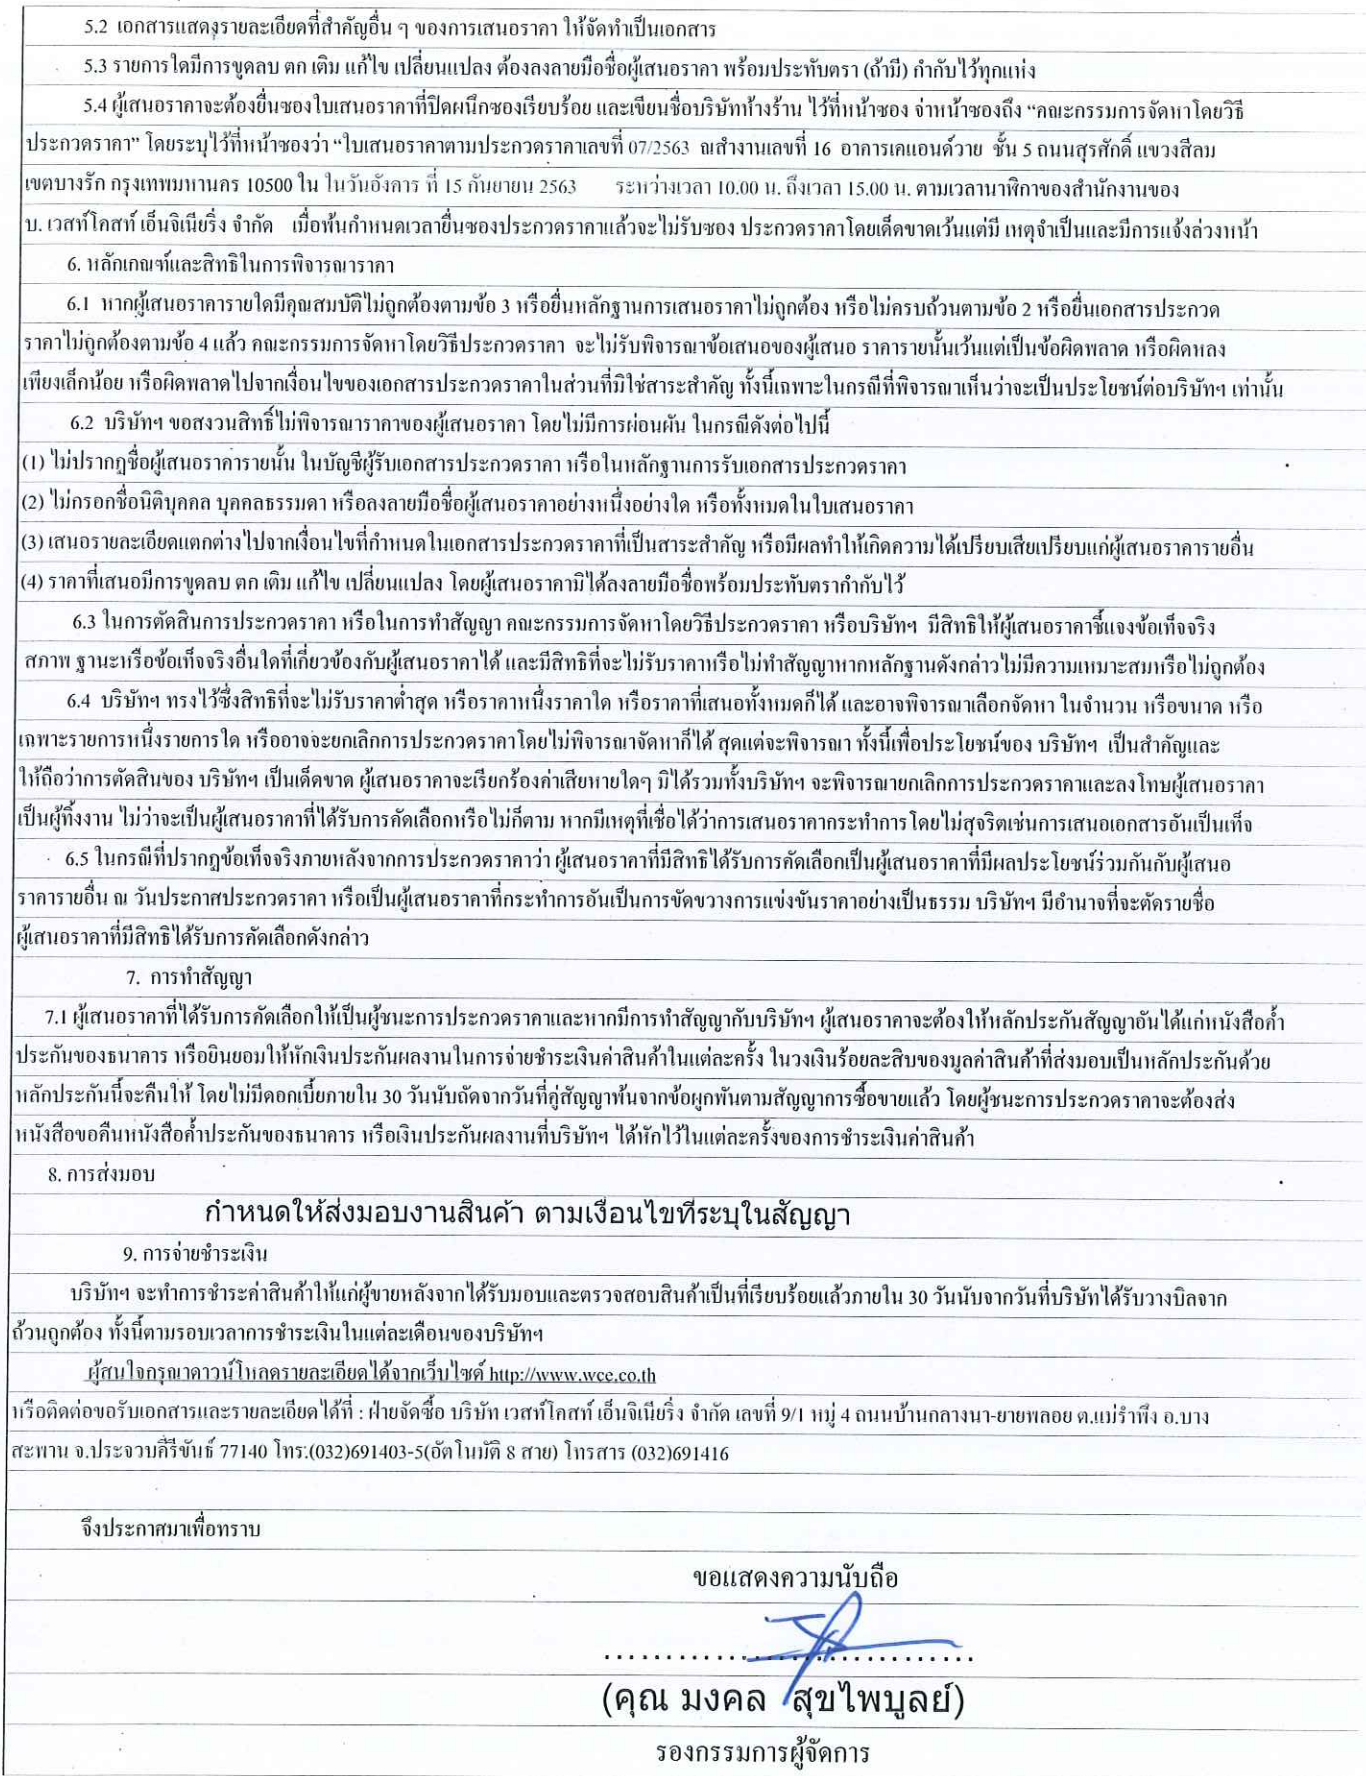 5.2 เอกสารแสดงรายละเอียดที่สำคัญอื่น ๆ ของการเสนอราคา ให้จัดทำเป็นเอกสาร
5.3 รายการใดมีการขูดลบ ตก เติม แก้ไข เปลี่ยนแปลง ต้องลงลายมือชื่อผู้เสนอราคา พร้อมประทับตรา (ถ้ามี) กำกับไว้ทุกแห่ง
5.4 ผู้เสนอราคาจะต้องยื่นซองใบเสนอราคาที่ปิดผนึกซองเรียบร้อย และเขียนชื่อบริษัทห้างร้าน ไว้ที่หน้าซอง จ่าหน้าซองถึง “คณะกรรมการจัดหาโดยวิธี
ประกวดราคา” โดยระบุไว้ที่หน้าซองว่า “ใบเสนอราคาตามประกวดราคาเลขที่ 07/2563 ณสำงานเลขที่ 16 อาคารเคแอนด์วาย ชั้น 5 ถนนสุรศักดิ์ แขวงสีลม
เขตบางรัก กรุงเทพมหานคร 10500 ใน ในวันอังคาร ที่ 15 กันยายน 2563 ระหว่างเวลา 10.00 น. ถึงเวลา 15.00 น. ตามเวลานาฬิกาของสำนักงานของ
บ. เวสท์โคสท์ เอ็นจิเนียริ่ง จำกัด เมื่อพ้นกำหนดเวลายื่นซองประกวดราคาแล้วจะไม่รับซอง ประกวดราคาโดยเด็ดขาดเว้นแต่มี เหตุจำเป็นและมีการแจ้งล่วงหน้า
6. หลักเกณฑ์และสิทธิในการพิจารณาราคา
6.1 หากผู้เสนอราคารายใดมีคุณสมบัติไม่ถูกต้องตามข้อ 3 หรือยื่นหลักฐานการเสนอราคาไม่ถูกต้อง หรือไม่ครบถ้วนตามข้อ 2 หรือยื่นเอกสารประกวด
ราคาไม่ถูกต้องตามข้อ 4 แล้ว คณะกรรมการจัดหาโดยวิธีประกวดราคา จะไม่รับพิจารณาข้อเสนอของผู้เสนอ ราคารายนั้นเว้นแต่เป็นข้อผิดพลาด หรือผิดหลง
เพียงเล็กน้อย หรือผิดพลาดไปจากเงื่อนไขของเอกสารประกวดราคาในส่วนที่มิใช่สาระสำคัญ ทั้งนี้เฉพาะในกรณีที่พิจารณาเห็นว่าจะเป็นประโยชน์ต่อบริษัทฯ เท่านั้น
6.2 บริษัทฯ ขอสงวนสิทธิ์ไม่พิจารณาราคาของผู้เสนอราคา โดยไม่มีการผ่อนผัน ในกรณีดังต่อไปนี้
(1) ไม่ปรากฏชื่อผู้เสนอราคารายนั้น ในบัญชีผู้รับเอกสารประกวดราคา หรือในหลักฐานการรับเอกสารประกวดราคา
(2) ไม่กรอกชื่อนิติบุคคล บุคคลธรรมดา หรือลงลายมือชื่อผู้เสนอราคาอย่างหนึ่งอย่างใด หรือทั้งหมดในใบเสนอราคา
(3) เสนอรายละเอียดแตกต่างไปจากเงื่อนไขที่กำหนดในเอกสารประกวดราคาที่เป็นสาระสำคัญ หรือมีผลทำให้เกิดความได้เปรียบเสียเปรียบแก่ผู้เสนอราคารายอื่น
(4) ราคาที่เสนอมีการขูดลบ ตก เติม แก้ไข เปลี่ยนแปลง โดยผู้เสนอราคามิได้ลงลายมือชื่อพร้อมประทับตรากำกับไว้
6.3 ในการตัดสินการประกวดราคา หรือในการทำสัญญา คณะกรรมการจัดหาโดยวิธีประกวดราคา หรือบริษัทฯ มีสิทธิให้ผู้เสนอราคาชี้แจงข้อเท็จจริง
สภาพ ฐานะหรือข้อเท็จจริงอื่นใดที่เกี่ยวข้องกับผู้เสนอราคาได้ และมีสิทธิที่จะไม่รับราคาหรือไม่ทำสัญญาหากหลักฐานดังกล่าวไม่มีความเหมาะสมหรือไม่ถูกต้อง
6.4 บริษัทฯ ทรงไว้ซึ่งสิทธิที่จะไม่รับราคาต่ำสุด หรือราคาหนึ่งราคาใด หรือราคาที่เสนอทั้งหมดก็ได้ และอาจพิจารณาเลือกจัดหา ในจำนวน หรือขนาด หรือ
เฉพาะรายการหนึ่งรายการใด หรืออาจจะยกเลิกการประกวดราคาโดยไม่พิจารณาจัดหาก็ได้ สุดแต่จะพิจารณา ทั้งนี้เพื่อประโยชน์ของ บริษัทฯ เป็นสำคัญและ
ให้ถือว่าการตัดสินของ บริษัทฯ เป็นเด็ดขาด ผู้เสนอราคาจะเรียกร้องค่าเสียหายใดๆ มิได้รวมทั้งบริษัทฯ จะพิจารณายกเลิกการประกวดราคาและลงโทษผู้เสนอราคา
เป็นผู้ทิ้งงาน ไม่ว่าจะเป็นผู้เสนอราคาที่ได้รับการคัดเลือกหรือไม่ก็ตาม หากมีเหตุที่เชื่อได้ว่าการเสนอราคากระทำการโดยไม่สุจริตเช่นการเสนอเอกสารอันเป็นเท็จ
6.5 ในกรณีที่ปรากฏข้อเท็จจริงภายหลังจากการประกวดราคาว่า ผู้เสนอราคาที่มีสิทธิได้รับการคัดเลือกเป็นผู้เสนอราคาที่มีผลประโยชน์ร่วมกันกับผู้เสนอ
ราคารายอื่น ณ วันประกาศประกวดราคา หรือเป็นผู้เสนอราคาที่กระทำการอันเป็นการขัดขวางการแข่งขันราคาอย่างเป็นธรรม บริษัทฯ มีอำนาจที่จะตัดรายชื่อ
ผู้เสนอราคาที่มีสิทธิได้รับการคัดเลือกดังกล่าว
7. การทำสัญญา
7.1 ผู้เสนอราคาที่ได้รับการคัดเลือกให้เป็นผู้ชนะการประกวดราคาและหากมีการทำสัญญากับบริษัทฯ ผู้เสนอราคาจะต้องให้หลักประกันสัญญาอันได้แก่หนังสือค้ำ
ประกันของธนาคาร หรือยินยอมให้หักเงินประกันผลงานในการจ่ายชำระเงินค่าสินค้าในแต่ละครั้ง ในวงเงินร้อยละสิบของมูลค่าสินค้าที่ส่งมอบเป็นหลักประกันด้วย
หลักประกันนี้จะคืนให้ โดยไม่มีดอกเบี้ยภายใน 30 วันนับถัดจากวันที่คู่สัญญาพ้นจากข้อผูกพันตามสัญญาการซื้อขายแล้ว โดยผู้ชนะการประกวดราคาจะต้องส่ง
หนังสือขอคืนหนังสือค้ำประกันของธนาคาร หรือเงินประกันผลงานที่บริษัทฯ ได้หักไว้ในแต่ละครั้งของการชำระเงินค่าสินค้า
8. การส่งมอบ
กำหนดให้ส่งมอบงานสินค้า ตามเงื่อนไขที่ระบุในสัญญา
9. การจ่ายชำระเงิน
บริษัทฯ จะทำการชำระค่าสินค้าให้แก่ผู้ขายหลังจากได้รับมอบและตรวจสอบสินค้าเป็นที่เรียบร้อยแล้วภายใน 30 วันนับจากวันที่บริษัทได้รับวางบิลจาก
ถ้วนถูกต้อง ทั้งนี้ตามรอบเวลาการชำระเงินในแต่ละเดือนของบริษัทฯ
ผู้สนใจกรุณาดาวน์โหลดรายละเอียดได้จากเว็บไซด์ http://www.wce.co.th
หรือติดต่อขอรับเอกสารและรายละเอียดได้ที่ : ฝ่ายจัดซื้อ บริษัท เวสท์โคสท์ เอ็นจิเนียริ่ง จำกัด เลขที่ 9/1 หมู่ 4 ถนนบ้านกลางนา-ยายพลอย ต.แม่รำพึง อ.บาง
สะพาน จ.ประจวบคีรีขันธ์ 77140 โทร.(032)691403-5(อัตโนมัติ 8 สาย) โทรสาร (032)691416
จึงประกาศมาเพื่อทราบ
ขอแสดงความนับถือ
(คุณ มงคล สุขไพบูลย์)
รองกรรมการผู้จัดการ